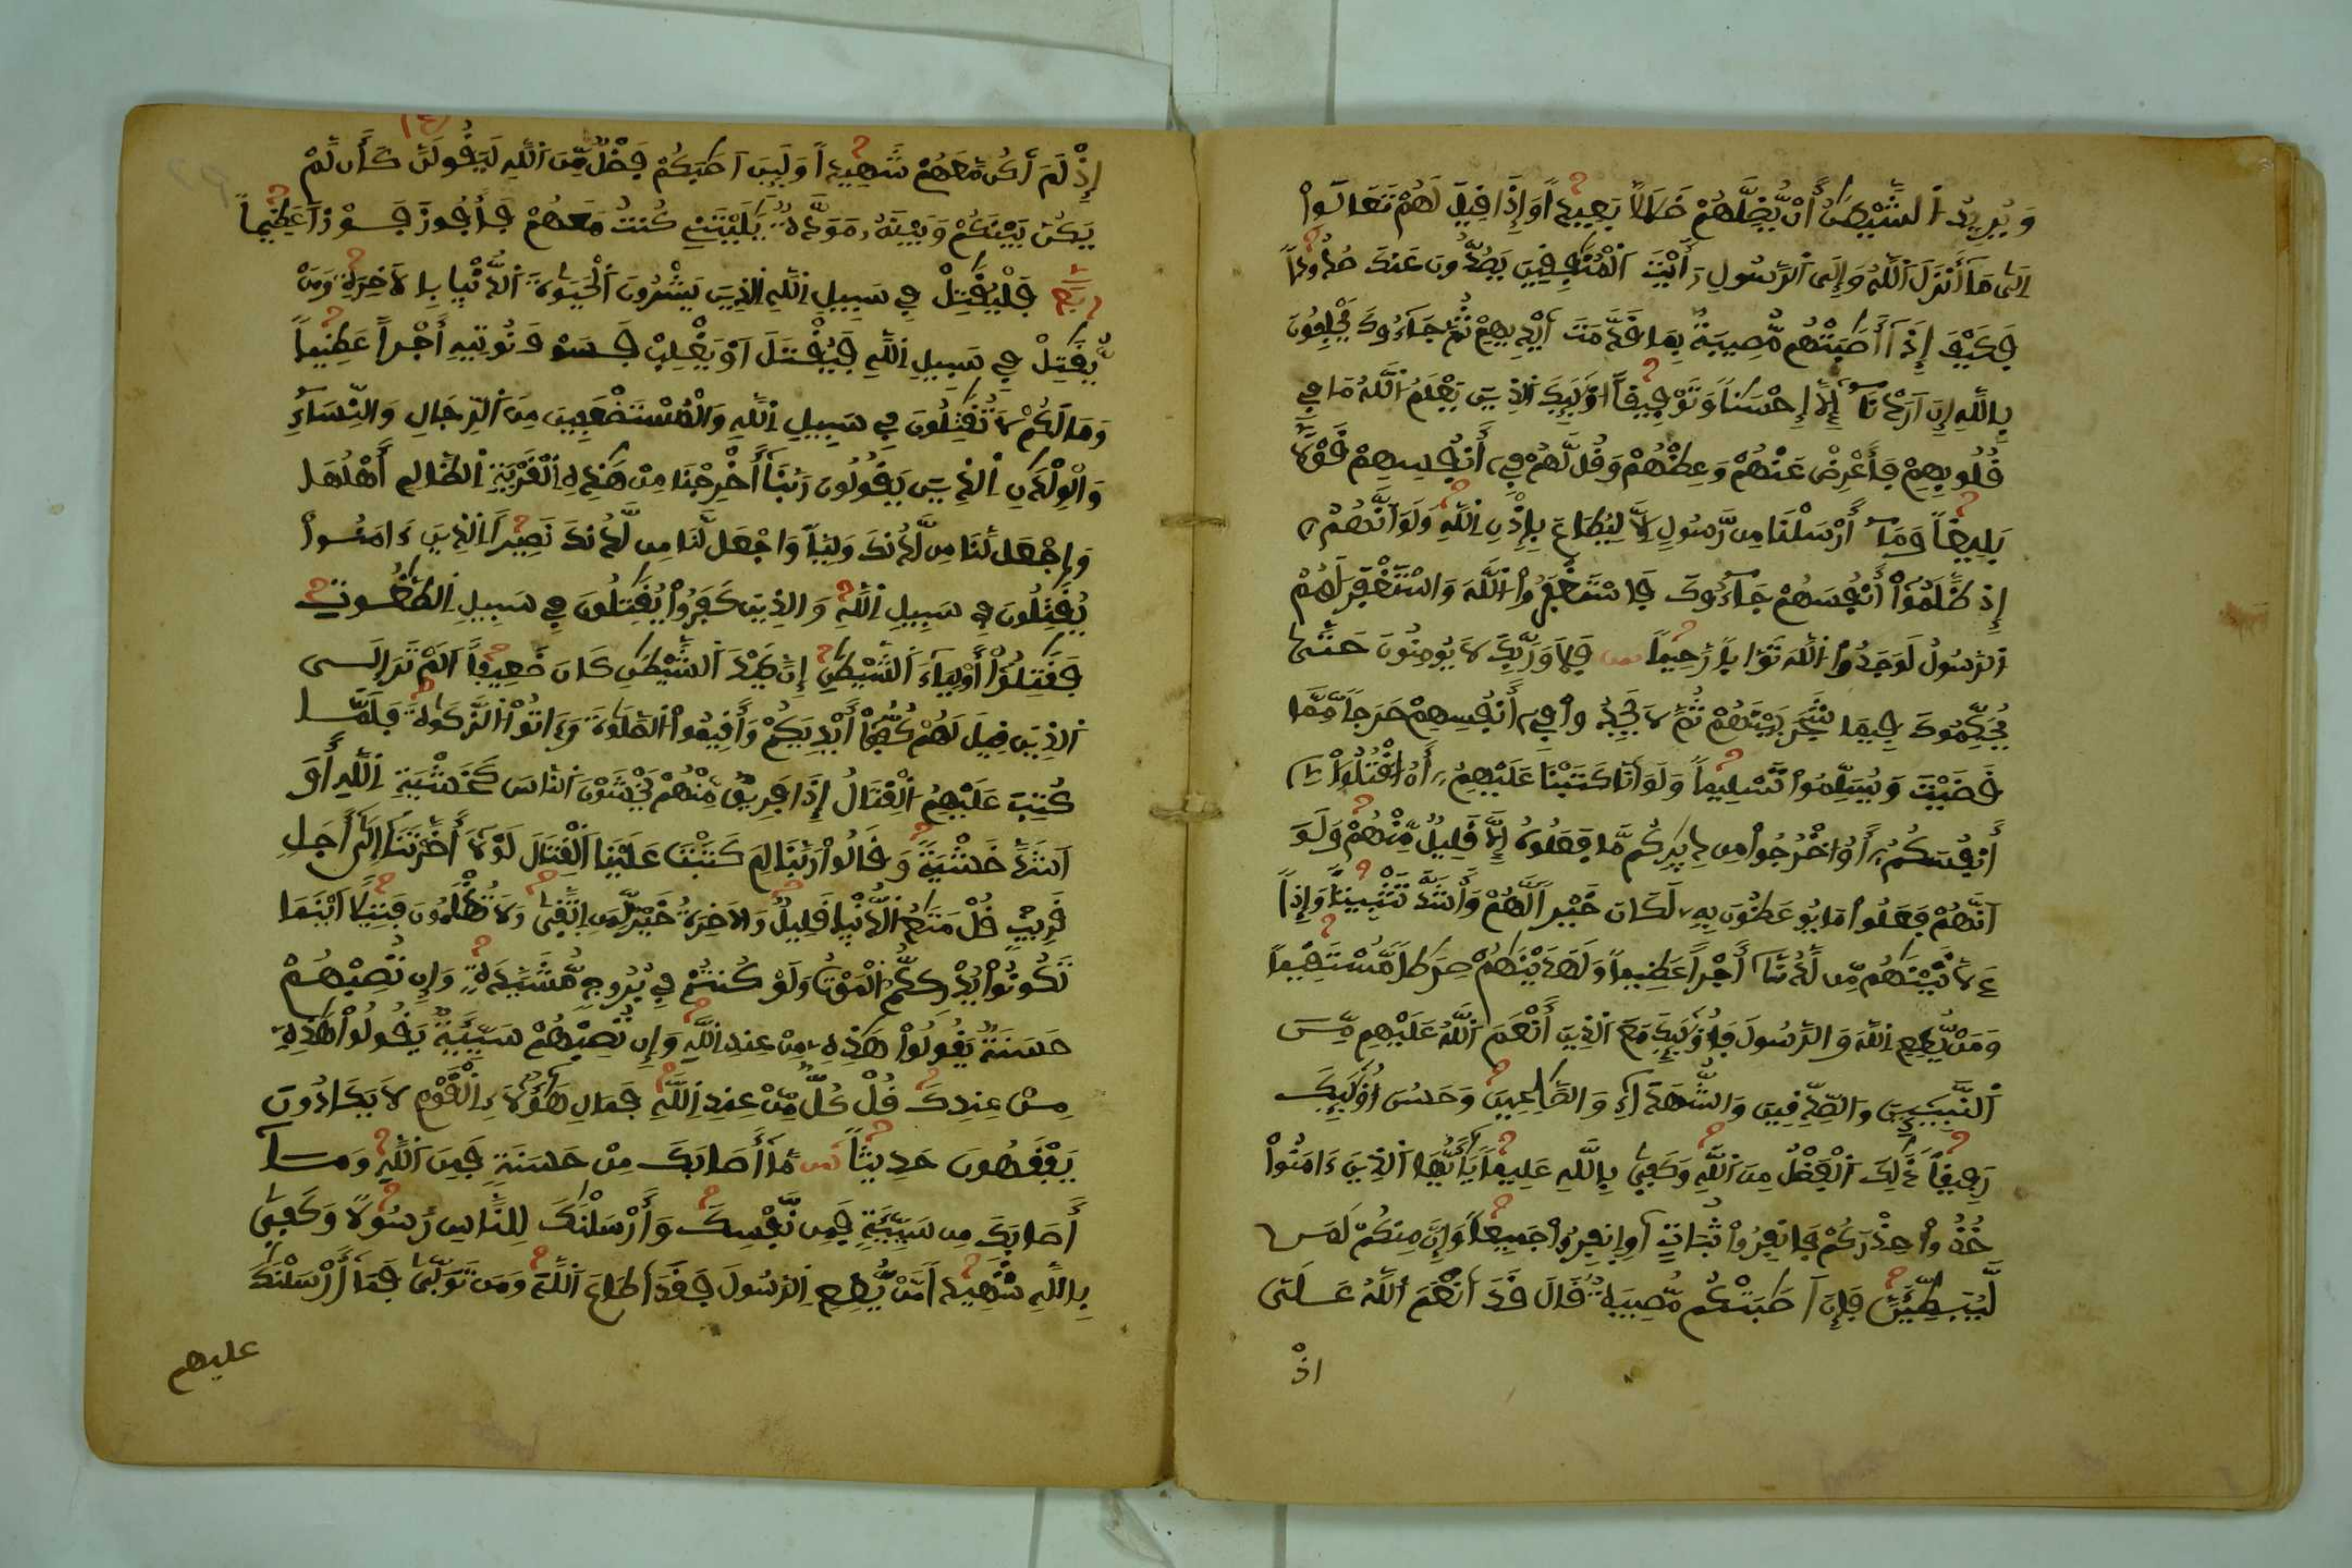 وَيُرِيدُ الشَّيْطَٰنُ أَنْ يُّضِلَّهُمْ ضَلَٰلاً بَعِيداً وَإِذَا قِيلَ لَهُمْ تَعَالَوْاْ
اِلَىٰ مَا أَنزَلَ اَللَّهُ وَإِلَى اَلرَّسُولِ رَأَيْتَ اَلْمُنَٰفِقِينَ يَصُدُّونَ عَنكَ صُدُوداً
فَكَيْفَ إِذَا أَصَٰبَتْهُم مُّصِيبَةٌ بِمَا قَدَّمَتَ اَيْدِيهِمْ ثُمَّ جَاءُوكَ يَحْلِفُونَ
بِاللَّهِ إِنَ اَرَدْنَا إِلَّا إِحْسَٰناً وَتَوْفِيقاً اوْلَٰئِكَ اَلذِينَ يَعْلَمُ اَللَّهُ مَا فِي
قُلُوبِهِمْ فَأَعْرِضْ عَنْهُمْ وَعِظْهُمْ وَقُل لَّهُمْ فِي أَنفُسِهِمْ قَوْلاً
بَلِيغاً وَمَا أَرْسَلْنَا مِن رَّسُولٍ اِلَّا لِيُطَاعَ بِإِذْنِ اِللَّهِ وَلَوَ اَنَّهُمُ
إِذ ظَّلَمُواْ أَنفُسَهُمْ جَاءُوكَ فَاسْتَغْفَرُواْ اللَّهَ وَاسْتَغْفَرَ لَهُمُ
اَلرَّسُولُ لَوَجَدُواْ اللَّهَ تَوَّاباً رَّحِيماً فَلَا وَرَبِّكَ لَا يُومِنُونَ حَتَّىٰ
يُحَكِّمُوكَ فِيمَا شَجَرَ بَيْنَهُمْ ثُمَّ لَا يَجِدُواْ فِي أَنفُسِهِمْ حَرَجاً مِّمَّا
قَضَيْتَ وَيُسَلِّمُواْ تَسْلِيماً وَلَوَ اَنَّا كَتَبْنَا عَلَيْهِمُ أَنُ اقْتُلُواْ
أَنفُسَكُمُ أَوُ اخْرُجُواْ مِن دِيَٰرِكُم مَّا فَعَلُوهُ إِلَّا قَلِيلٌ مِّنْهُمْ وَلَوَ
اَنَّهُمْ فَعَلُواْ مَا يُوعَظُونَ بِهِ لَكَانَ خَيْراً لَّهُمْ وَأَشَدَّ تَثْبِيتاً وَإِذاً
ءَلَاتَيْنَٰهُم مِّن لَّدُنَّا أَجْراً عَظِيماً وَلَهَدَيْنَٰهُمْ صِرَٰطاً مُّسْتَقِيماً
وَمَنْ يُّطِعِ اِللَّهَ وَالرَّسُولَ فَأُوْلَٰئِكَ مَعَ اَلذِينَ أَنْعَمَ اَللَّهُ عَلَيْهِم مِّنَ
اَلنَّبِيِٕينَ وَالصِّدِّيقِينَ وَالشُّهَدَاءِ وَالصَّٰلِحِينَ وَحَسُنَ أُوْلَٰئِكَ
رَفِيقاً ذَٰلِكَ اَلْفَضْلُ مِنَ اَللَّهِ وَكَفَىٰ بِاللَّهِ عَلِيماً يَٰأَيُّهَا اَلذِينَ ءَامَنُواْ
خُذُواْ حِذْرَكُمْ فَانفِرُواْ ثُبَاتٍ اَوِ اِنفِرُواْ جَمِيعاً وَإِنَّ مِنكُمْ لَمَن
لَّيُبَطِّئَنَّ فَإِنَ اَصَٰبَتْكُم مُّصِيبَةٌ قَالَ قَدَ اَنْعَمَ اَللَّهُ عَلَىَّ
اذْ
إِذْ لَمَ اَكُن مَّعَهُمْ شَهِيداً وَلَئِنَ اَصَٰبَكُمْ فَضْلٌ مِّنَ اَللَّهِ لَيَقُولَنَّ كَأَن لَّمْ
يَكُنْ بَيْنَكُمْ وَبَيْنَهُ مَوَدَّةٌ يَٰلَيْتَنِي كُنتُ مَعَهُمْ فَأَفُوزَ فَوْزاً عَظِيماً
فَلْيُقَٰتِلْ فِي سَبِيلِ اِللَّهِ اِلذِينَ يَشْرُونَ اَلْحَيَوٰةَ اَلدُّنْيَا بِالَاخِرَةِ وَمَنْ
يُّقَٰتِلْ فِي سَبِيلِ اِللَّهِ فَيُقْتَلَ اَوْ يَغْلِبْ فَسَوْفَ نُوتِيهِ أَجْراً عَظِيماً
وَمَا لَكُمْ لَا تُقَٰتِلُونَ فِي سَبِيلِ اِللَّهِ وَالْمُسْتَضْعَفِينَ مِنَ اَلرِّجَالِ وَالنِّسَاءِ
وَالْوِلْدَٰنِ اِلذِينَ يَقُولُونَ رَبَّنَا أَخْرِجْنَا مِنْ هَٰذِهِ اِلْقَرْيَةِ اِلظَّالِمِ أَهْلُهَا
وَاجْعَل لَّنَا مِن لَّدُنكَ وَلِيّاً وَاجْعَل لَّنَا مِن لَّدُنكَ نَصِيراً اَلذِينَ ءَامَنُواْ
يُقَٰتِلُونَ فِي سَبِيلِ اِللَّهِ وَالذِينَ كَفَرُواْ يُقَٰتِلُونَ فِي سَبِيلِ اِلطَّٰغُوتِ
فَقَٰتِلُواْ أَوْلِيَاءَ اَلشَّيْطَٰنِ إِنَّ كَيْدَ اَلشَّيْطَٰنِ كَانَ ضَعِيفاً اَلَمْ تَرَ إِلَى
اَلذِينَ قِيلَ لَهُمْ كُفُّواْ أَيْدِيَكُمْ وَأَقِيمُواْ اُلصَّلَوٰةَ وَءَاتُواْ اُلزَّكَوٰةَ فَلَمَّا
كُتِبَ عَلَيْهِمُ اُلْقِتَالُ إِذَا فَرِيقٌ مِّنْهُمْ يَخْشَوْنَ اَلنَّاسَ كَخَشْيَةِ اِللَّهِ أَوَ
اَشَدَّ خَشْيَةً وَقَالُواْ رَبَّنَا لِمَ كَتَبْتَ عَلَيْنَا اَلْقِتَالَ لَوْلَا أَخَّرْتَنَا إِلَىٰ أَجَلٍ
قَرِيبٍ قُلْ مَتَٰعُ اُلدُّنْيَا قَلِيلٌ وَالَاخِرَةُ خَيْرٌ لِّمَنِ اِتَّقَىٰ وَلَا تُظْلَمُونَ فَتِيلاً اَيْنَمَا
تَكُونُواْ يُدْرِككُّمُ اُلْمَوْتُ وَلَوْ كُنتُمْ فِي بُرُوجٍ مُّشَيَّدَةٍ وَإِن تُصِبْهُمْ
حَسَنَةٌ يَقُولُواْ هَٰذِهِ مِنْ عِندِ اِللَّهِ وَإِن تُصِبْهُمْ سَيِّئَةٌ يَقُولُواْ هَٰذِهِ
مِنْ عِندِكَ قُلْ كُلٌّ مِّنْ عِندِ اِللَّهِ فَمَالِ هَٰؤُلَاءِ اِلْقَوْمِ لَا يَكَادُونَ
يَفْقَهُونَ حَدِيثاً مَّا أَصَابَكَ مِنْ حَسَنَةٍ فَمِنَ اَللَّهِ وَمَا
أَصَابَكَ مِن سَيِّئَةٍ فَمِن نَّفْسِكَ وَأَرْسَلْنَٰكَ لِلنَّاسِ رَسُولاً وَكَفَىٰ
بِاللَّهِ شَهِيداً مَّنْ يُّطِعِ اِلرَّسُولَ فَقَدَ اَطَاعَ اَللَّهَ وَمَن تَوَلَّىٰ فَمَا أَرْسَلْنَٰكَ
عليهم